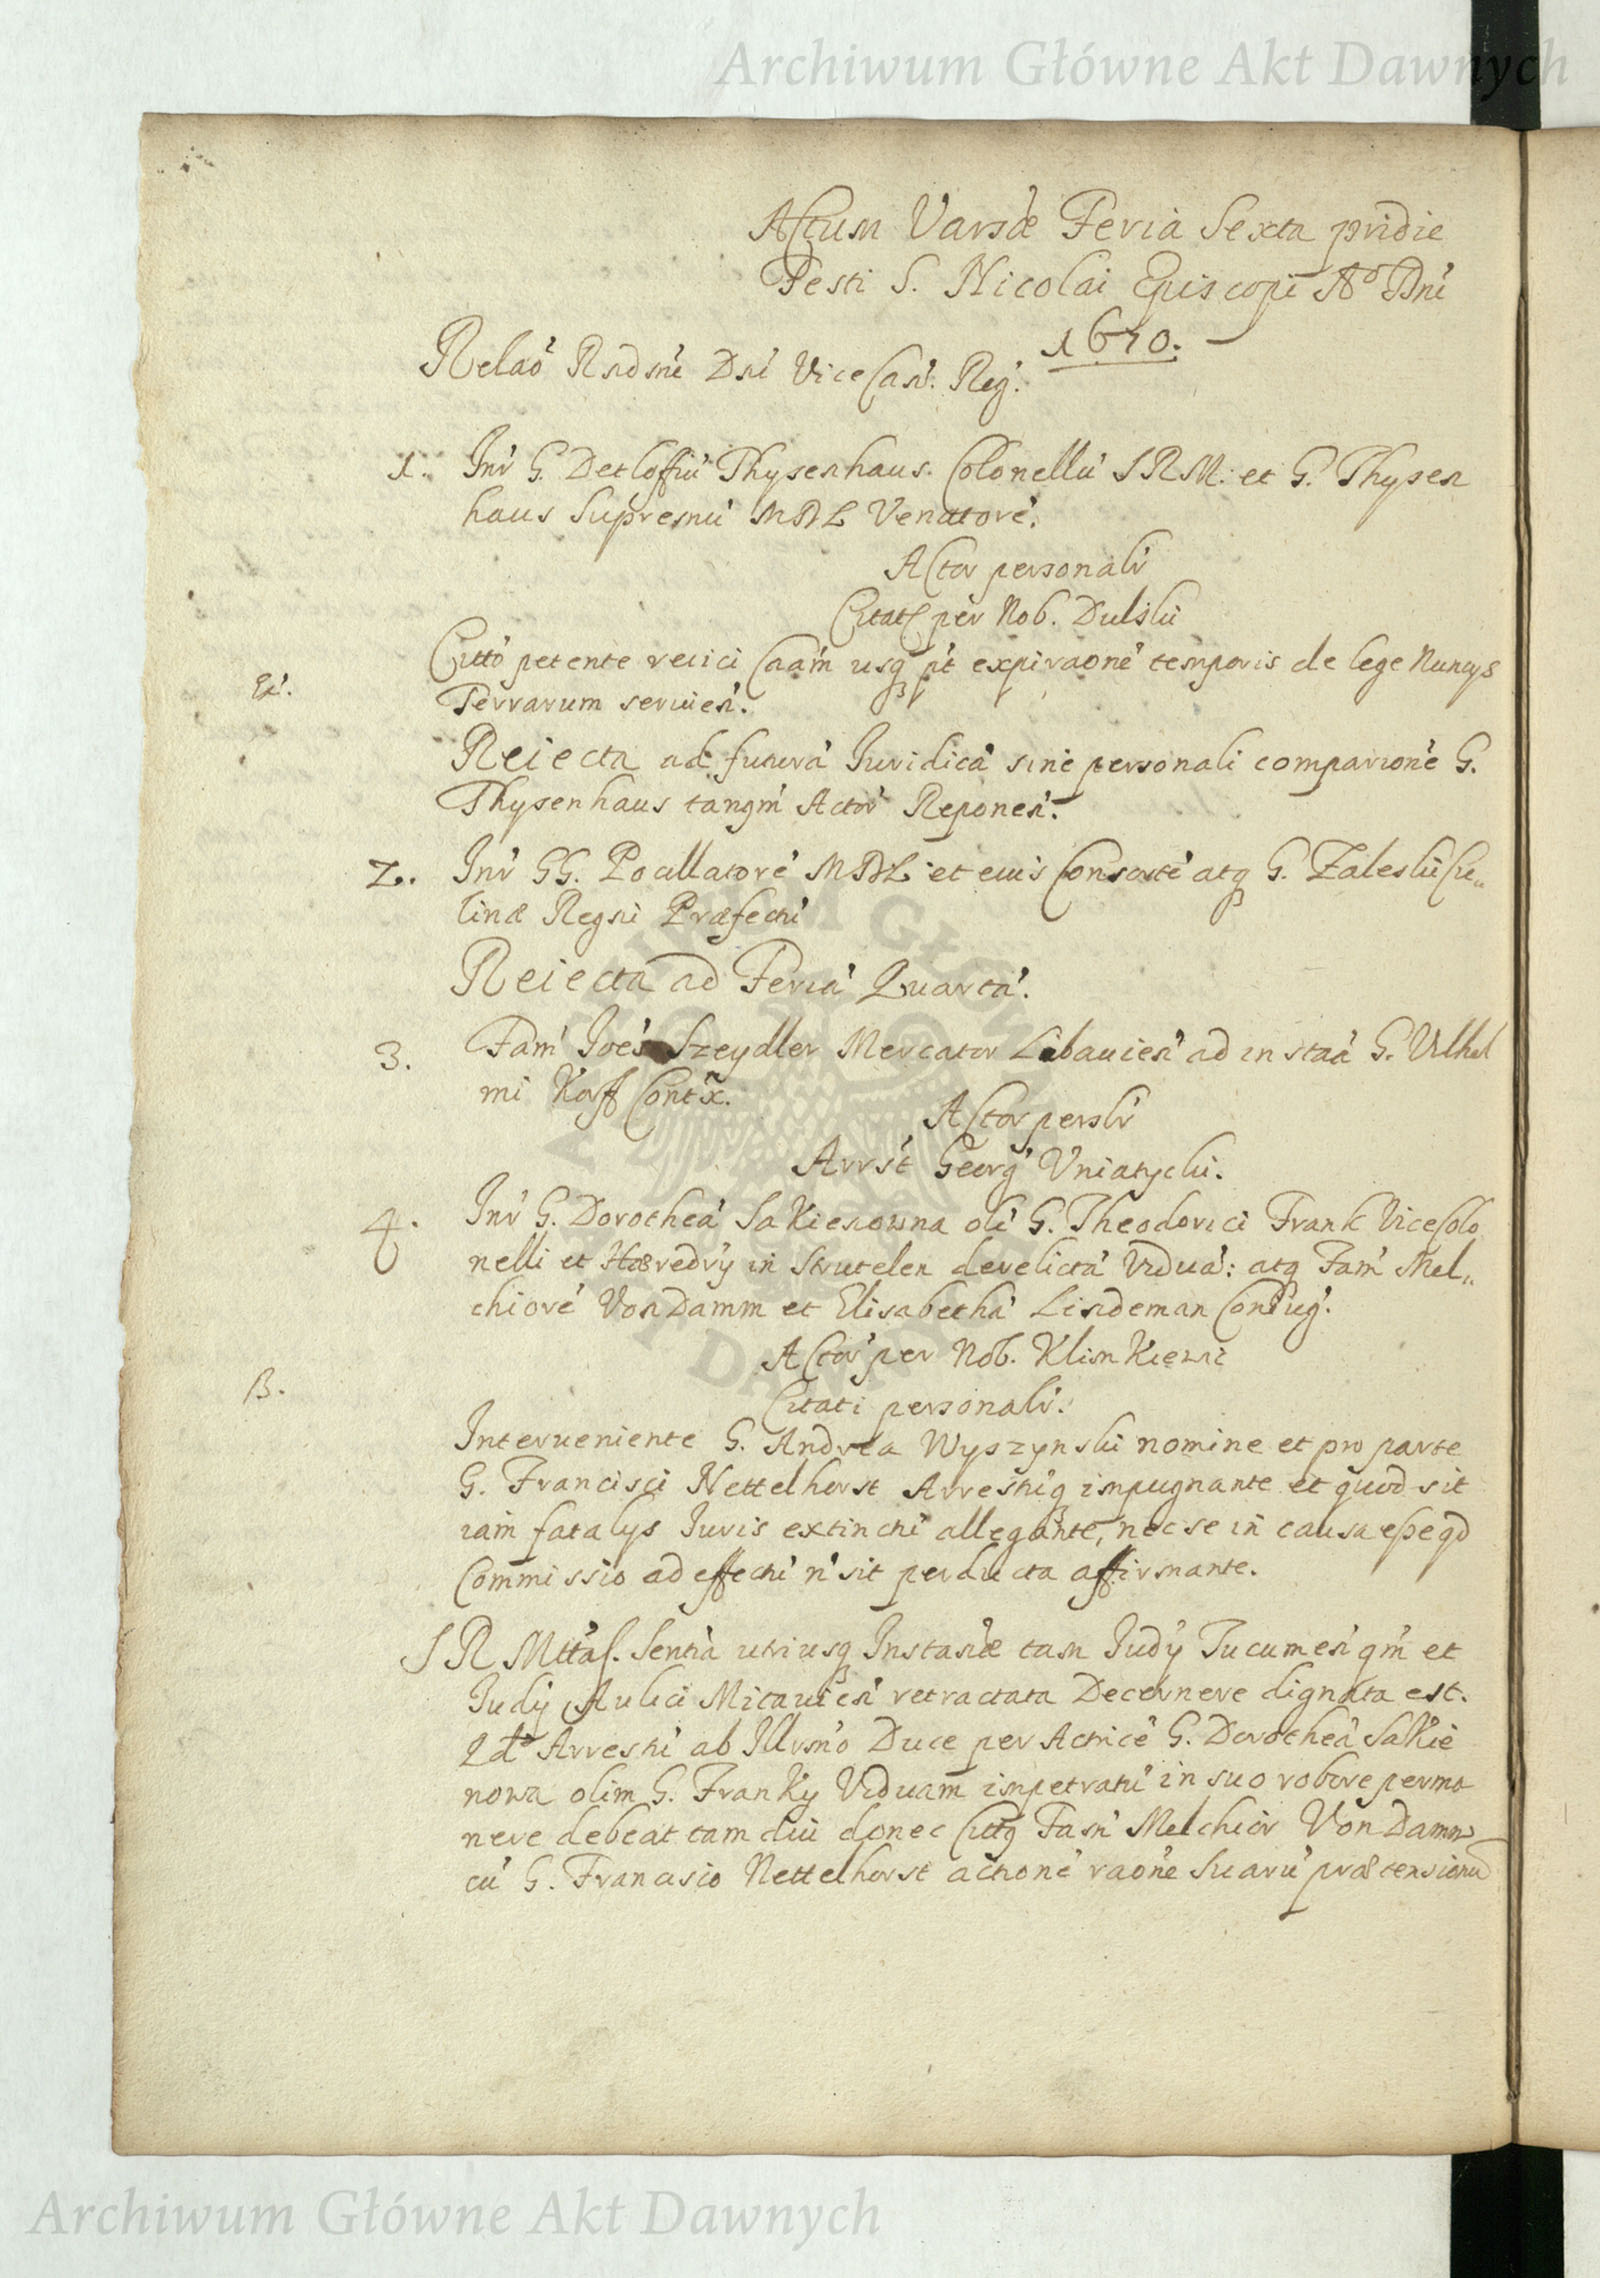 Archiwum Główne Akt Dawnych
Actum Varsæ Feria Sexta pridie
Festi S. Nicolai Episcopi Aº Dni
1670.
Relaō Rndmi Dni Vice Can. Reg.
1. Inr G. Detloffiu Thysenhaus. Colonellu SRM. et G. Thysen
haus Supremu MDL Venatore.
Actor personalr
Citatq per Nob. Dulski
Citto petente reiici Caam usq pt expiraone temporis de lege Nuncys
Terrarum servien.
Reiecta ad futura Iuridica sine personali comparione G.
Thysenhaus tanqm Actor Reponen.
2. Inr GG. Pocillatore MDL et eius Consorte atq G. Zaleski Cu„
linæ Regni Præfectu
Reiecta ad Feria Quarta.
3. Fam Joes Szeydler Mercator Libavien ad instaa G. Vilhel
mi Korff Contx.
Actor perslr
Arrst Georg Vniatycki.
4. Inr G. Dorothea Sakienowna oli G. Theodorici Frank ViceColo
nelli et Hæredry in Strutelen derelicta Vidua: atq Fam Mel„
chiore Von Damm et Elisabetha Lindeman Coniug.
Actor per Nob. Klimkiewic
B.
Citati personalr.
Interveniente G. Andrea Wyszynski nomine et pro parte
G. Francisci Nettelhorst Arrestuq impugnante et quod sit
iam fatalys Iuris extinctu allegante, nec se in causa esse qd
Commissio ad effectu n sit perducta affirmante.
S R Mttas. Sentia utriusq Instanæ tam Judy Tucumen qm et
Judy Aulici Mitavien retractata Decernere dignata est.
Qd Arrestu ab Illrmo Duce per Actrice G. Dorothea Sakie
nowa olim G. Franky Viduam impetratu in suo robore perma
nere debeat tam diu donec Cittq Fam Melchior Von Damm
cu G. Francisio Nettelhorst actione raone suaru prætensionu
Archiwum Główne Akt Dawnych